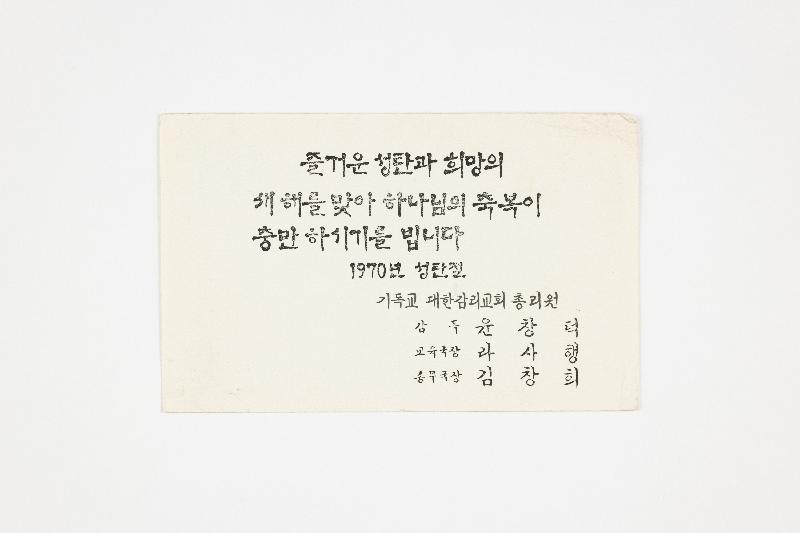 즐거운 성탄과 희망의
새해를 맞아 하나님의 축복이
충만 하시기를 빕니다
1970년 성탄절
기독교 대한감리교회 총리원
감 독 윤 창 덕
교육국장 라 사 행
총무국장 김 창 희